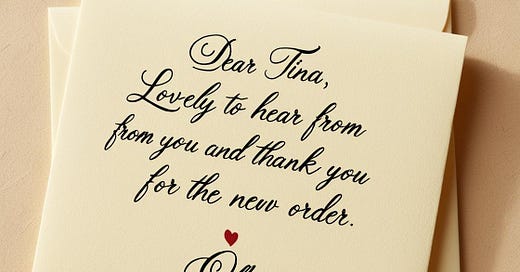 Dear Tina,
Lovely to hear from
from you and thank you
for the new order.